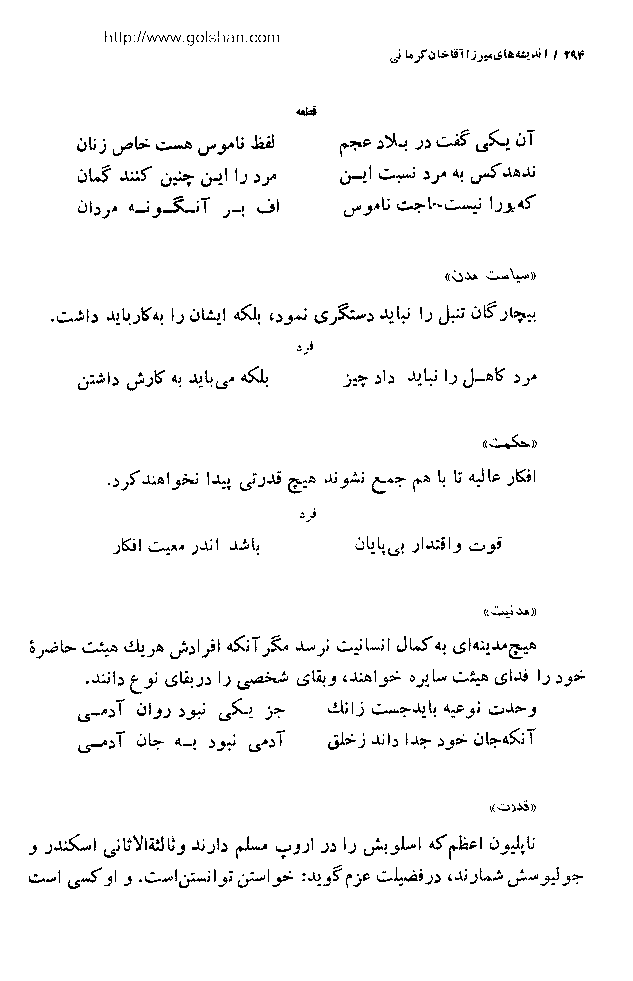 http://www.golshan.com
۲۹۴ / اندیشه‌های میرزا آقاخان کرمانی
قطعه
آن یکی گفت در بلاد عجم لفظ ناموس هست خاص زنان
ندهد کس به مرد نسبت این مرد را این چنین کنند گمان
که ورا نیست حاجت ناموس اف بر آنگونه مردان
«سیاست مدن»
بیچارگان تنبل را نباید دستگری نمود، بلکه ایشان را به کار باید داشت.
فرد
مرد کاهل را نباید داد چیز بلکه می‌باید به کارش داشتن
«حکمت»
افکار عالیه تا با هم جمع نشوند هیچ قدرتی پیدا نخواهند کرد.
فرد
قوت و اقتدار بی‌پایان باشد اندر معیت افکار
«مدنیت»
هیچ مدینه‌ای به کمال انسانیت نرسد مگر آنکه افرادش هریك هیئت حاضرهٔ
خود را فدای هیئت سایره خواهند، و بقای شخصی را در بقای نوع دانند.
وحدت نوعیه باید جست زانك جز یکی نبود روان آدمی
آنکه جان خود جدا داند ز خلق آدمی نبود به جان آدمی
«قدرت»
ناپلیون اعظم که اسلوبش را در اروپ مسلم دارند و ثالثة‌الاثانی اسکندر و
جولیوسش شمارند، در فضیلت عزم گوید: خواستن توانستن است. و او کسی است